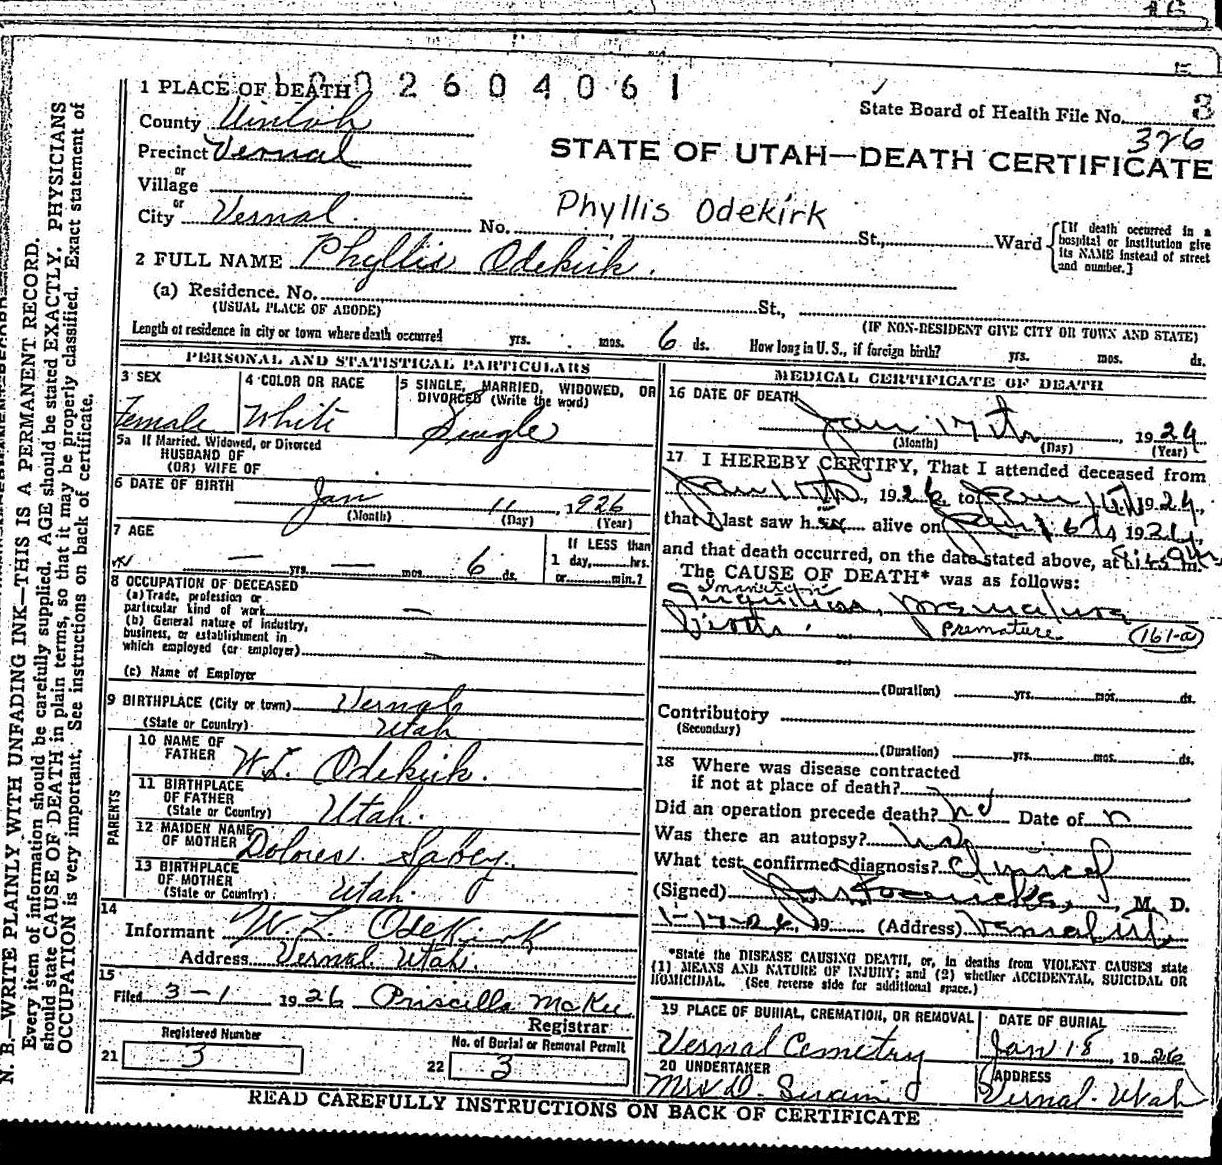 1 PLACE OF DEATH 002604061
State Board of Health File No. 3
326
County Uintah
STATE OF UTAH—DEATH CERTIFICATE
Precinct Vernal
or
Village
or
City Vernal. No. St., Ward
Phyllis Odekirk
[If death occurred in a
hospital or institution give
its NAME instead of street
and number.]
2 FULL NAME Phyllis Odekirk.
(a) Residence. No. St.,
(USUAL PLACE OF ABODE) (IF NON-RESIDENT GIVE CITY OR TOWN AND STATE)
Length of residence in city or town where death occurred yrs. mos. 6 ds. How long in U. S., if foreign birth? yrs. mos. ds.
PERSONAL AND STATISTICAL PARTICULARS
3 SEX
Female
4 COLOR OR RACE
White
5 SINGLE, MARRIED, WIDOWED, OR
DIVORCED (Write the word)
Single
5a If Married, Widowed, or Divorced
HUSBAND OF
(OR) WIFE OF
6 DATE OF BIRTH
Jan 11, 1926
(Month) (Day) (Year)
7 AGE
— yrs. — mos. 6 ds.
If LESS than
1 day, hrs.
or min.?
8 OCCUPATION OF DECEASED
(a) Trade, profession or
particular kind of work —
(b) General nature of industry,
business, or establishment in
which employed (or employer) —
(c) Name of Employer
9 BIRTHPLACE (City or town) Vernal
(State or Country) Utah
PARENTS
10 NAME OF
FATHER W. L. Odekirk.
11 BIRTHPLACE
OF FATHER
(State or Country) Utah.
12 MAIDEN NAME
OF MOTHER Dolores Sabey.
13 BIRTHPLACE
OF MOTHER
(State or Country) Utah.
14
Informant W. L. Odekirk
Address Vernal Utah.
15
Filed 3-1 1926 Priscilla McKee
Registrar
Registered Number
21 3
No. of Burial or Removal Permit
22 3
MEDICAL CERTIFICATE OF DEATH
16 DATE OF DEATH
Jan 17th, 1926
(Month) (Day) (Year)
17 I HEREBY CERTIFY, That I attended deceased from
Jan, 1926, to Jan, 1926,
that I last saw her alive on Jan 16th 1926,
and that death occurred, on the date stated above, at m.
The CAUSE OF DEATH* was as follows:
Inanition
Inanition, Premature
Birth. Premature 161-a
(Duration) yrs. mos. ds.
Contributory
(Secondary)
(Duration) yrs. mos. ds.
18 Where was disease contracted
if not at place of death?
Did an operation precede death? no Date of
Was there an autopsy? no
What test confirmed diagnosis? Clinical
(Signed) M. D.
1-17-26, 19 (Address) Vernal Ut.
*State the DISEASE CAUSING DEATH, or, in deaths from VIOLENT CAUSES state
(1) MEANS AND NATURE OF INJURY; and (2) whether ACCIDENTAL, SUICIDAL OR
HOMICIDAL. (See reverse side for additional space.)
19 PLACE OF BURIAL, CREMATION, OR REMOVAL
Vernal Cemetry
DATE OF BURIAL
Jan 18, 1926
20 UNDERTAKER
Mrs D. Swain
ADDRESS
Vernal. Utah
READ CAREFULLY INSTRUCTIONS ON BACK OF CERTIFICATE
N. B.—WRITE PLAINLY WITH UNFADING INK—THIS IS A PERMANENT RECORD.
Every item of information should be carefully supplied. AGE should be stated EXACTLY. PHYSICIANS
should state CAUSE OF DEATH in plain terms, so that it may be properly classified. Exact statement of
OCCUPATION is very important. See instructions on back of certificate.